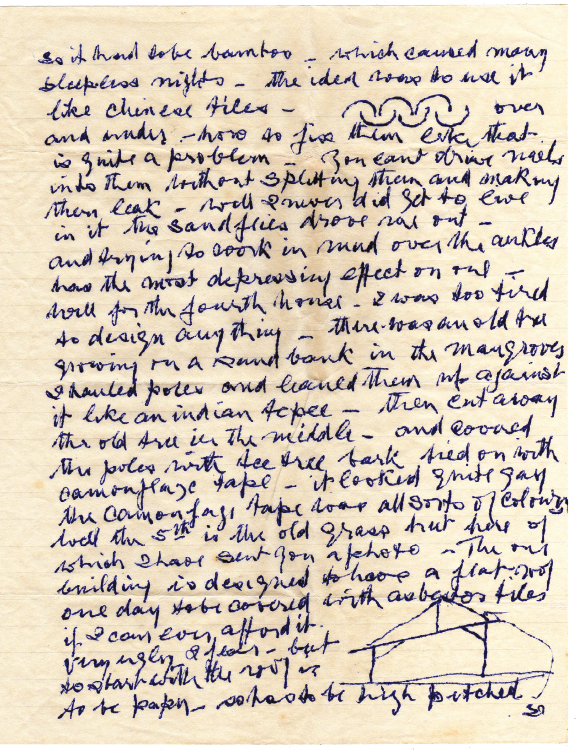 so it had to be bamboo – which caused many
sleepless nights – the idea was to use it
like chinese tiles – over
and under – how to fix them like that
is quite a problem – you cant drive nails
into them without splitting them and making
them leak – well I never did get to live
in it the sandflies drove me out –
and trying to work in mud over the ankles
has the most depressing effect on one –
well for the fourth house – I was too tired
to design anything – there was an old tree
growing on a sand bank in the mangroves
I hauled poles and leaned them up against
it like an indian tepee – then cut away
the old tree in the middle – and covered
the poles with tee tree bark tied on with
camouflage tape – it looked quite gay
the camouflage tape was all sorts of colours
well the 5th is the old grass hut here of
which I have sent you a photo – The one
building is designed to have a flat roof
one day to be covered with asbestos tiles
if I can ever afford it
very ugly I fear – but
to start with the roof is
to be paper – so has to be high pitched